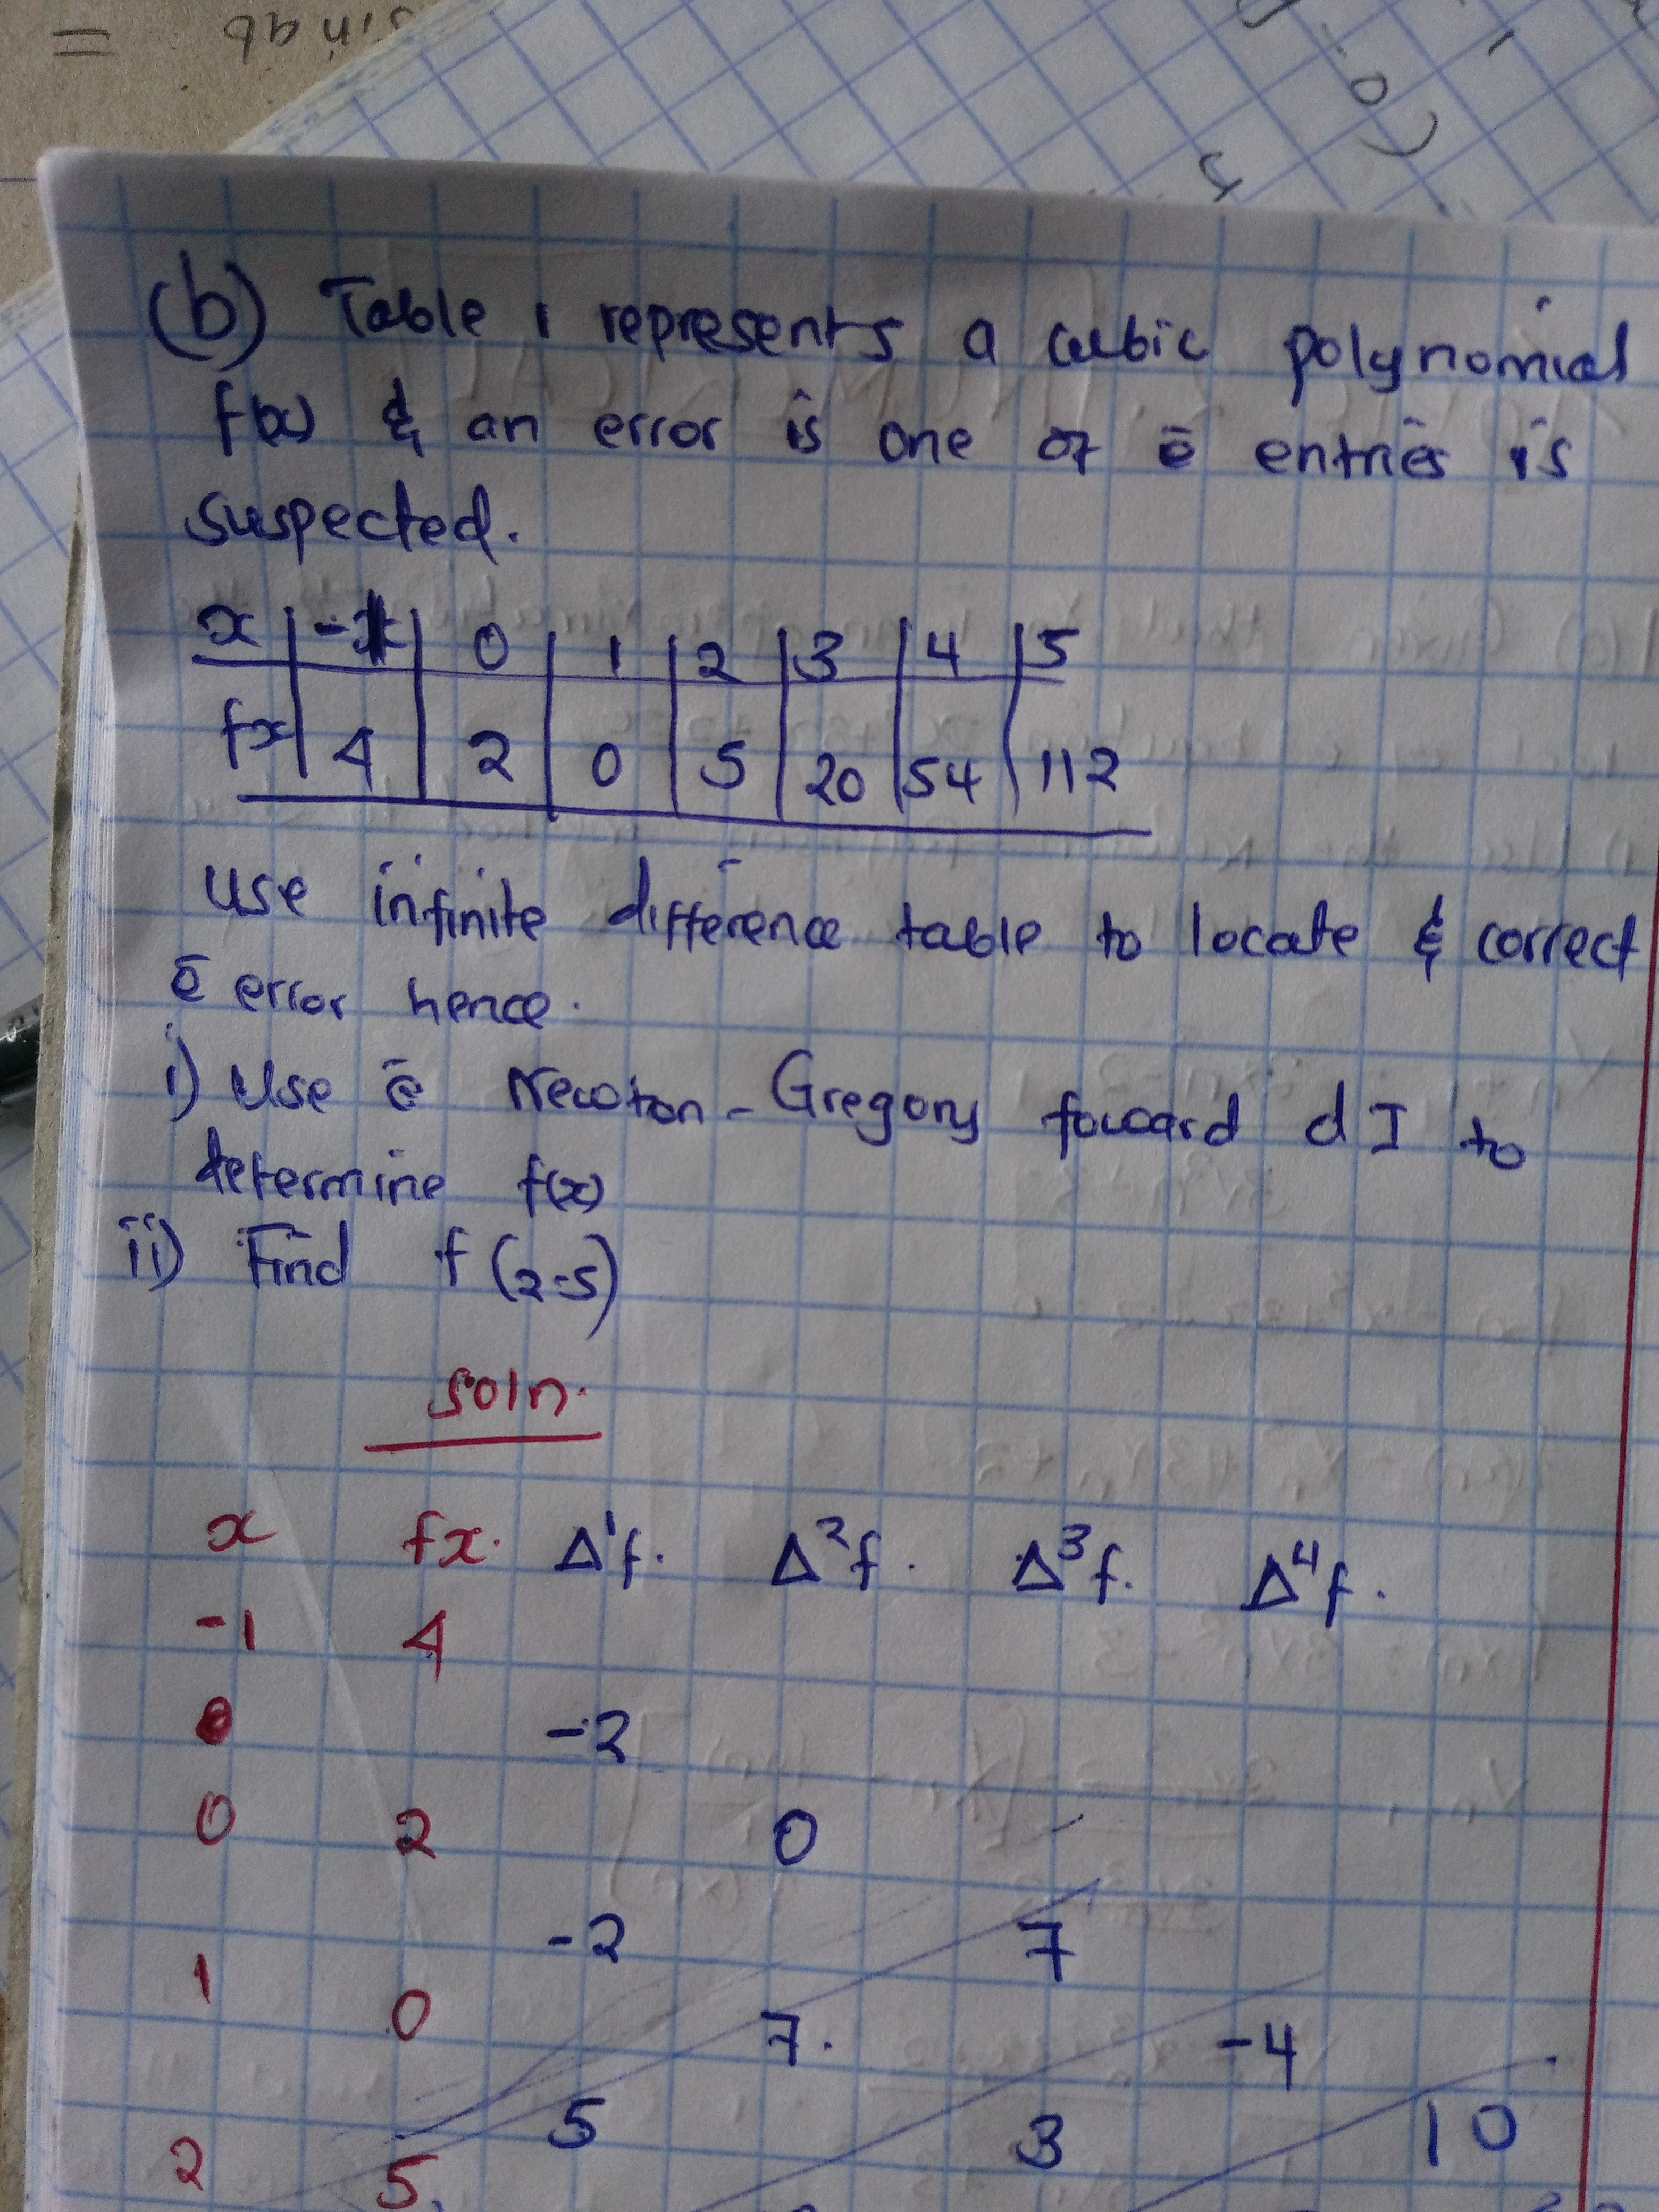 sin ab =
(b) Table 1 represents a cubic polynomial
f(x) & an error is one of ē entries is
suspected.
x | -1 | 0 | 1 | 2 | 3 | 4 | 5
fx | 4 | 2 | 0 | 5 | 20 | 54 | 112
use infinite difference table to locate & correct
ē error hence.
i) Use ē Newton-Gregory foward d I to
determine f(x)
ii) Find f(2.5)
soln.
x fx. Δ¹f. Δ²f. Δ³f. Δ⁴f.
-1 4
-2
0 2 0
-2 7
1 0 7. -4
5 3 10
2 5.